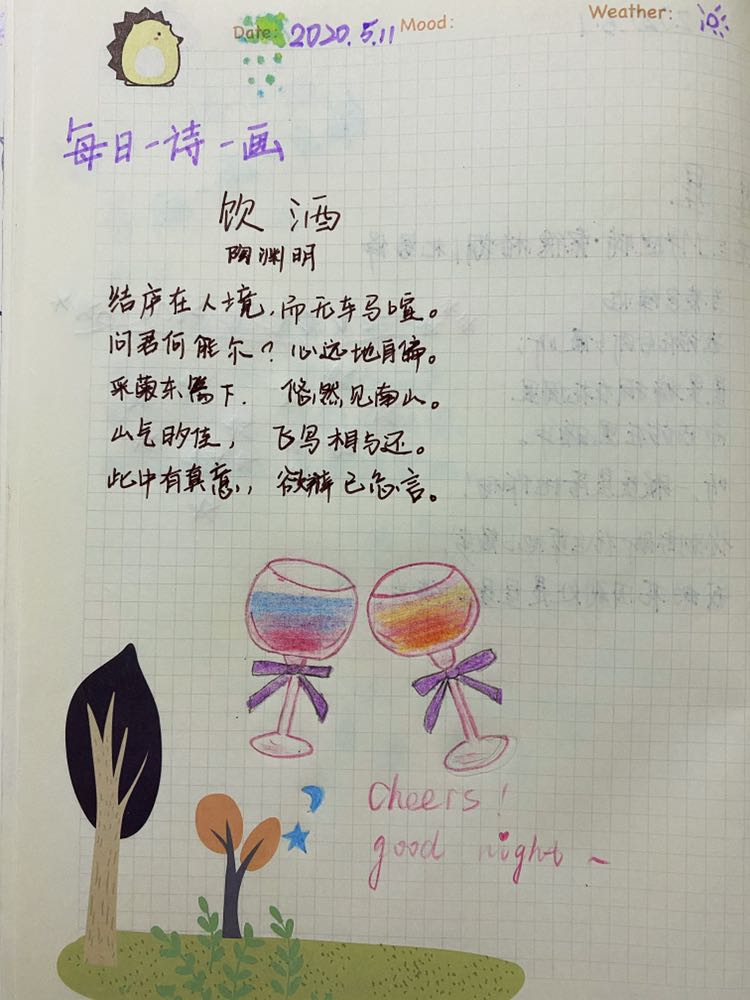 Date: 2020.5.11 Mood: Weather:
每日一诗一画
饮酒
陶渊明
结庐在人境，而无车马喧。
问君何能尔？心远地自偏。
采菊东篱下. 悠然见南山。
山气日夕佳， 飞鸟相与还。
此中有真意，欲辨已忘言。
cheers!
good night ~